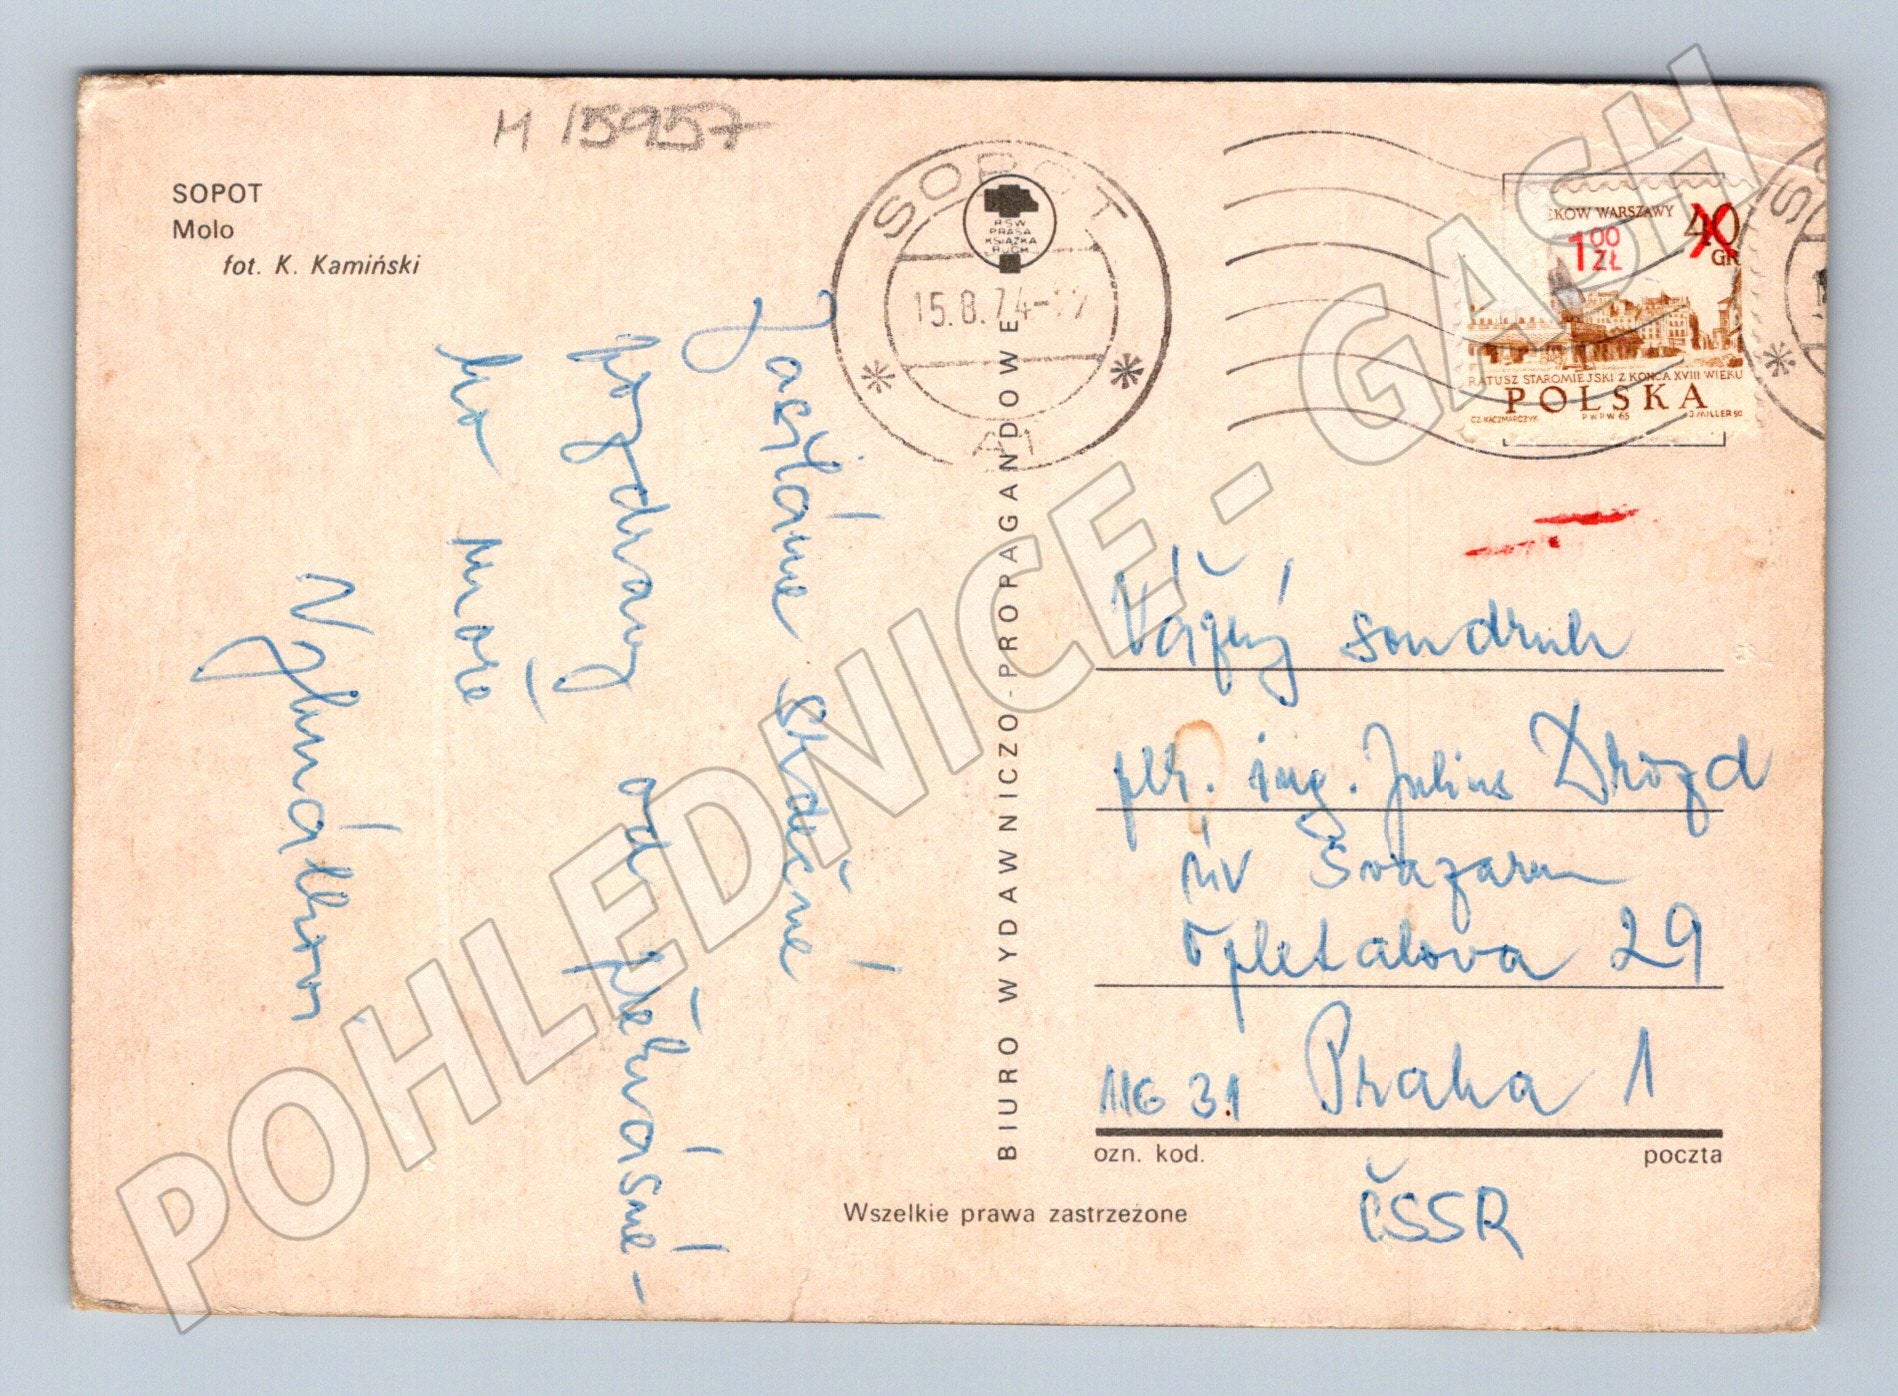 H 15957
SOPOT
Molo
fot. K. Kamiński
SOPOT
RSW
PRASA
KSIĄŻKA
RUCH
15.8.74
A1
EKÓW WARSZAWY
40
GR
1 00
ZŁ
RATUSZ STAROMIEJSKI Z KOŃCA XVIII WIEKU
POLSKA
CZ. KACZMARCZYK PWPW 65 J. MILLER SC
Zasíláme srdečné
pozdravy od překrásné-
ho moře
Vyhnálkovi
BIURO WYDAWNICZO-PROPAGANDOWE
Vážený soudruh
plk. ing. Julius Drozd
úv Svazarm
Opletalova 29
116 31 Praha 1
ozn. kod. poczta
ČSSR
Wszelkie prawa zastrzeżone
POHLEDNICE - GASH